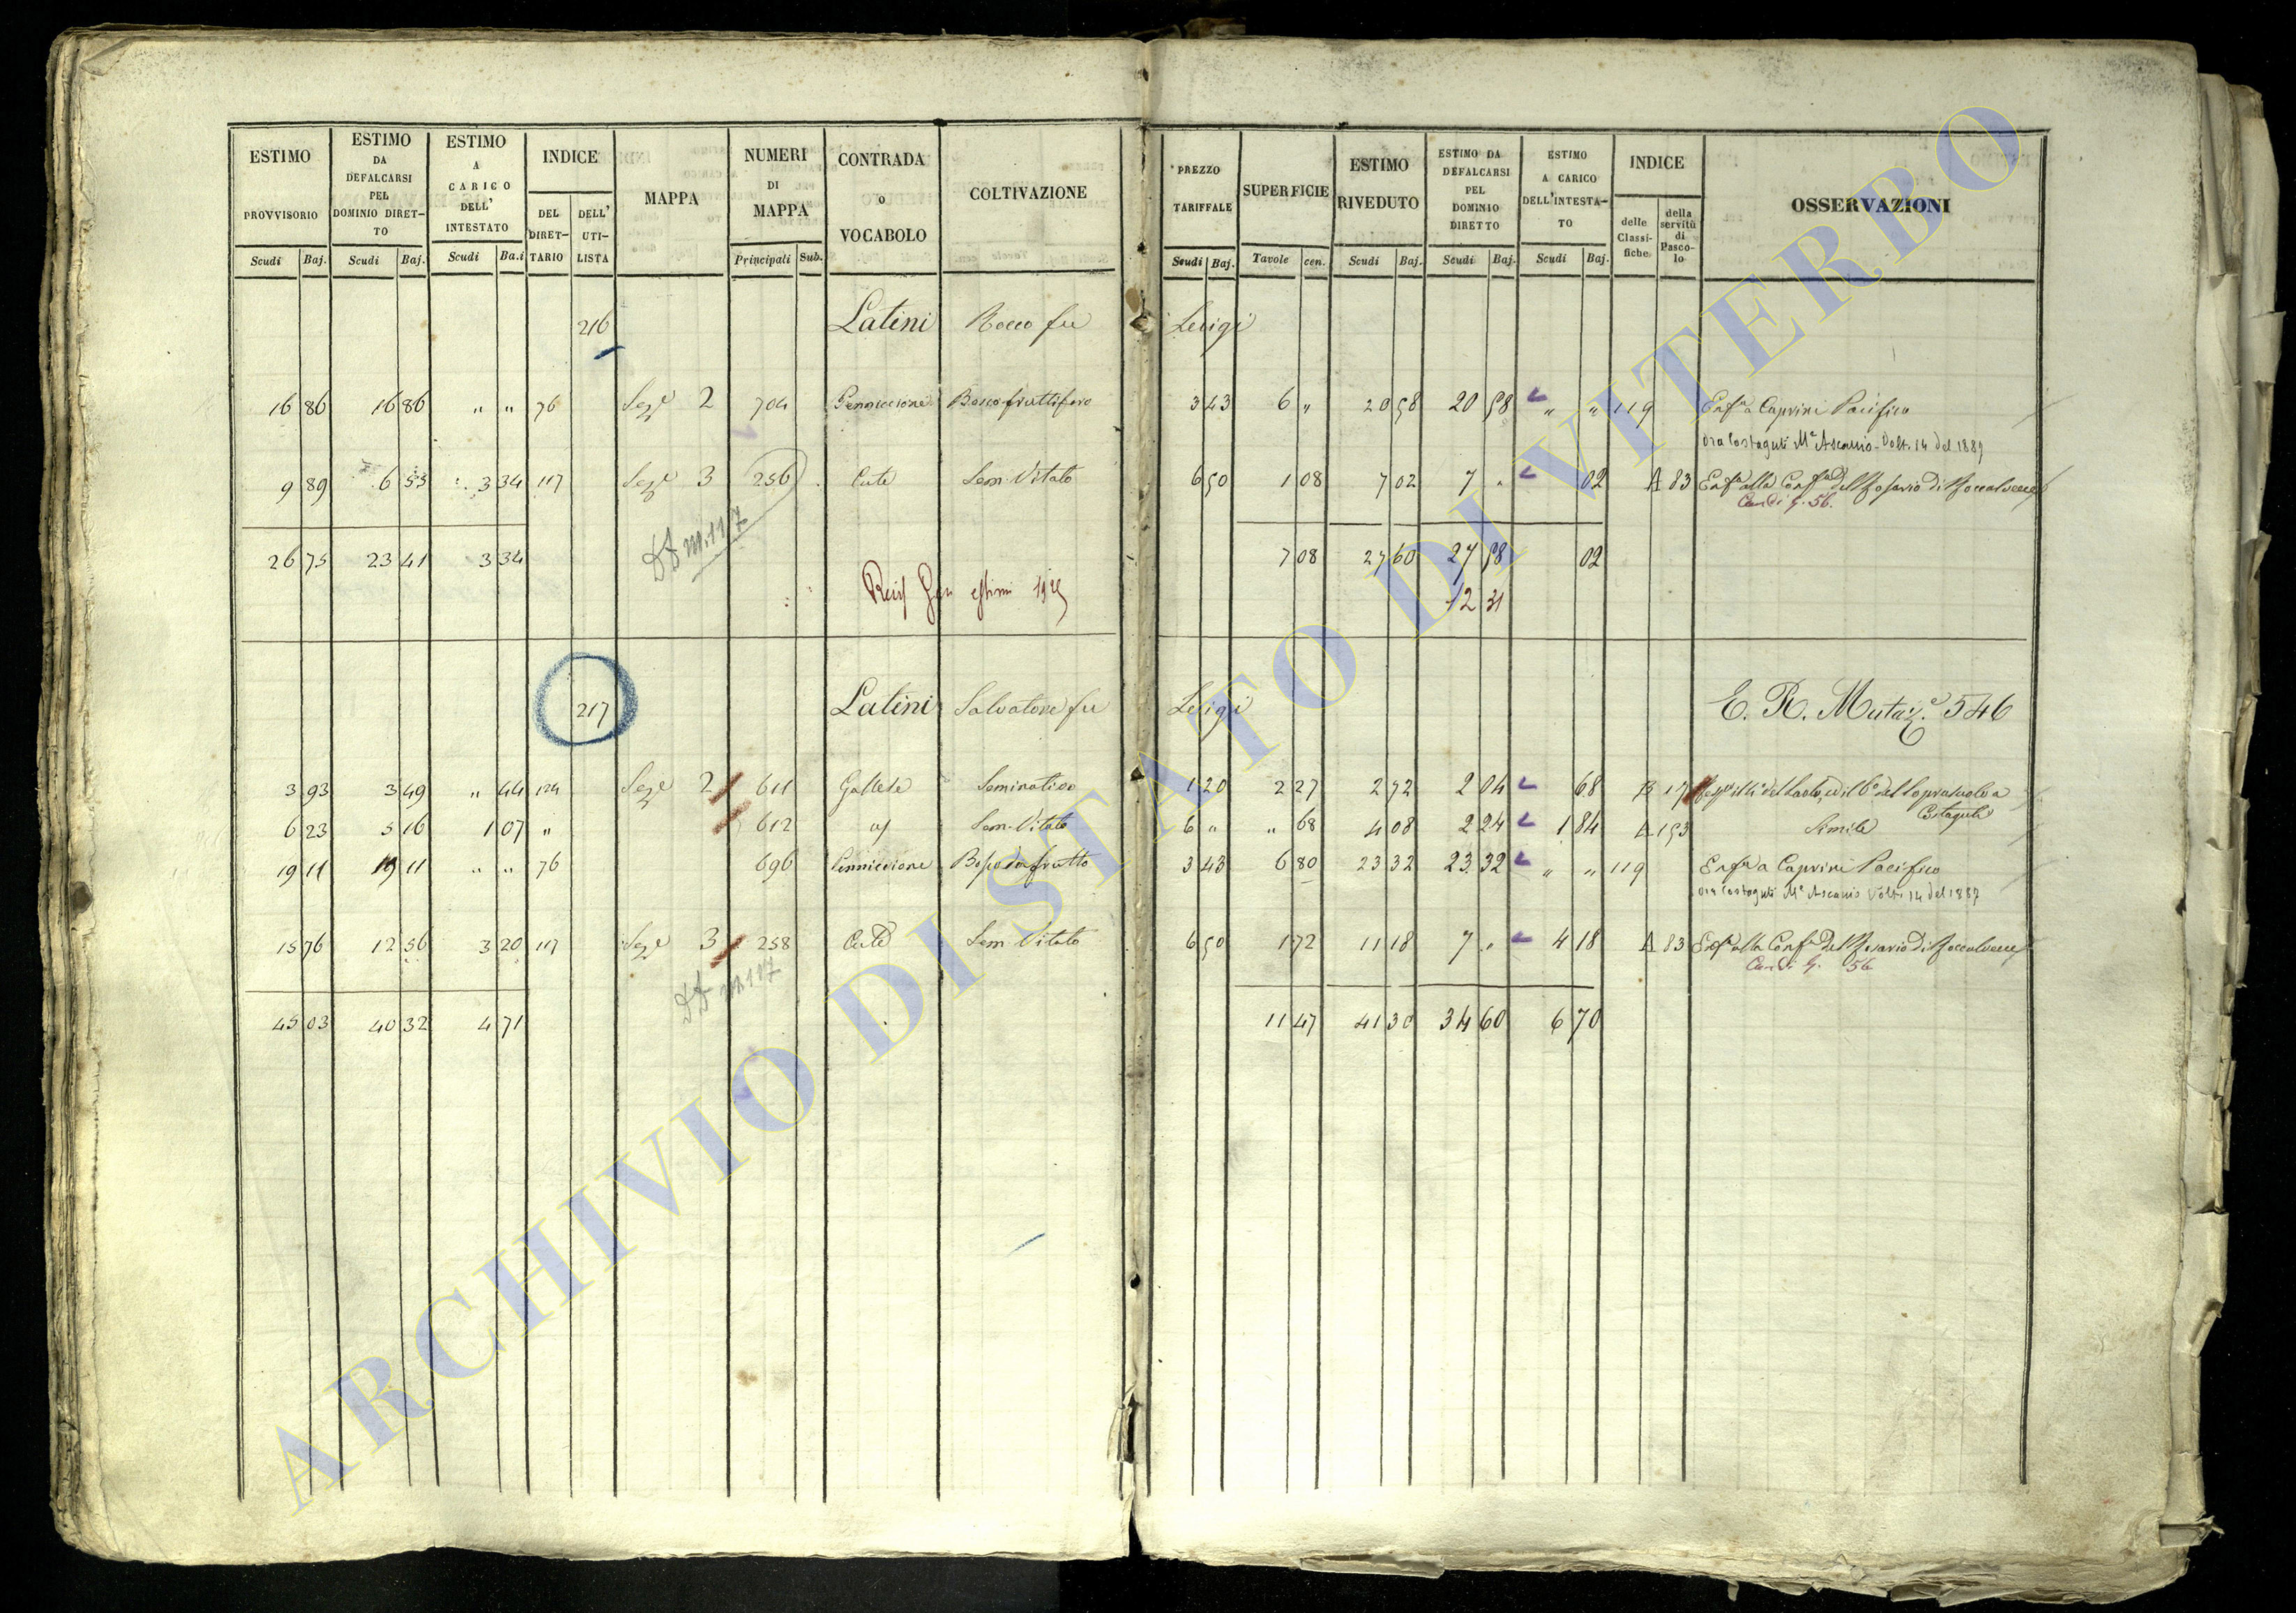 ESTIMO PROVVISORIO | ESTIMO DA DEFALCARSI PEL DOMINIO DIRETTO | ESTIMO A CARICO DELL' INTESTATO | INDICE | MAPPA | NUMERI DI MAPPA | CONTRADA o VOCABOLO | COLTIVAZIONE | PREZZO TARIFFALE | SUPERFICIE | ESTIMO RIVEDUTO | ESTIMO DA DEFALCARSI PEL DOMINIO DIRETTO | ESTIMO A CARICO DELL'INTESTATO | INDICE | OSSERVAZIONI
DEL DIRETTARIO | DELL' UTILISTA | delle Classifiche | della servitù di Pascolo
Scudi | Baj. | Scudi | Baj. | Scudi | Ba.i | Principali | Sub. | Scudi | Baj. | Tavole | cen. | Scudi | Baj. | Scudi | Baj. | Scudi | Baj.
216 Latini Rocco fu Luigi
16 86 | 16 86 | " " | 76 | Sez.e 2 | 704 | Penniccione | Bosco fruttifero | 3 43 | 6 " | 20 58 | 20 58 | " " | 119 | Enf.a a Caprini Pacifico
ora Costaguti M.e Ascanio Volt. 14 del 1887
9 89 | 6 55 | 3 34 | 117 | Sez.e 3 | 256 | Cute | Sem. Vitato | 6 50 | 1 08 | 7 02 | 7 " | 02 | A 83 | Enf.a alla Conf.a del Rosario di Roccalvecce
56.
117
26 75 | 23 41 | 3 34 | 7 08 | 27 60 | 27 58 | 02
estimi
12 31
217 Latini Salvatore fu Luigi E. R. Mutaz.e 546
3 93 | 3 49 | " 44 | 124 | Sez.e 2 | 611 | Gallese | Seminativo | 1 20 | 2 27 | 2 72 | 2 04 | 68 | B 17
Costaguti
6 23 | 5 16 | 1 07 | " | 612 | Sem. Vitato | 6 " | " 68 | 4 08 | 2 24 | 1 84 | A 153 | Simile
19 11 | 19 11 | " " | 76 | 696 | Penniccione | Bosco da frutto | 3 43 | 6 80 | 23 32 | 23 32 | " " | 119 | Enf.a a Caprini Pacifico
ora Costaguti M.e Ascanio Volt. 14 del 1887
15 76 | 12 56 | 3 20 | 117 | Sez.e 3 | 258 | Cute | Sem. Vitato | 6 50 | 1 72 | 11 18 | 7 " | 4 18 | A 83 | Enf.a alla Conf.a del Rosario di Roccalvecce
56
117
45 03 | 40 32 | 4 71 | 11 47 | 41 30 | 34 60 | 6 70
ARCHIVIO DI STATO DI VITERBO